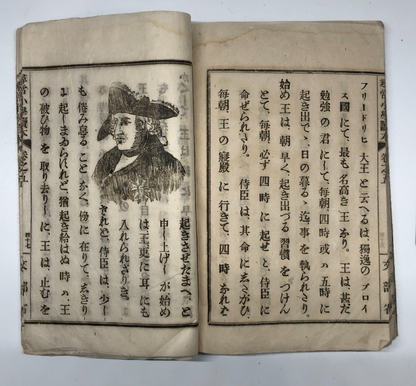 フリードリヒ大王と云へるは、獨逸の、プロイ
ス國にて、最も名高き王なり、王は、甚だ
勉強の君にして、毎朝四時或ハ五時に
起き出で、日の暮るゝ迄事を執られさり、
始め王は、朝早く、起き出づる習慣をつけん
とて、毎朝、必ず四時に起せと、侍臣に
命ぜられさり、侍臣は、其命にゑさがひ、
毎朝、王の寢殿に行きて、四時なれバ
起きさせたまへ、と
申し上げしが、始め
は、王更に耳にも
入れられざりき、
されど、侍臣は、少し
も倦み怠ることなく、傍に在りて、ゑきり
に起しまゐられど、猶起き給はぬ時ハ、王
の被ひ物を取り去りしに、王は、止むを
文部省